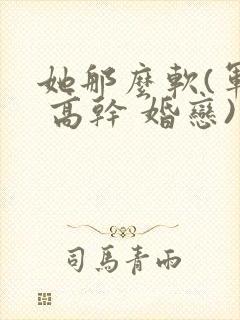 她那麼軟(軍
高幹 婚戀)
司馬青雨